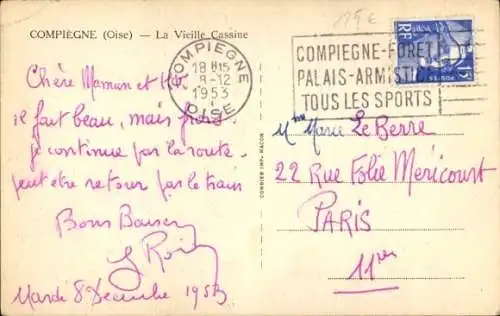 COMPIÈGNE (Oise) — La Vieille Cassine
15€
COMPIEGNE
18 H15
8-12
1953
OISE
COMPIEGNE-FORET
PALAIS-ARMISTICE
TOUS LES SPORTS
RF
Chère Maman et
il fait beau, mais froid.
je continue par la route.
peut etre retour par le train
Bons Baisers
Mardi 8 Decembre 1953
COMBIER IMP. MACON
Mme Marie Le Berre
22 Rue Folie Méricourt
PARIS
11me